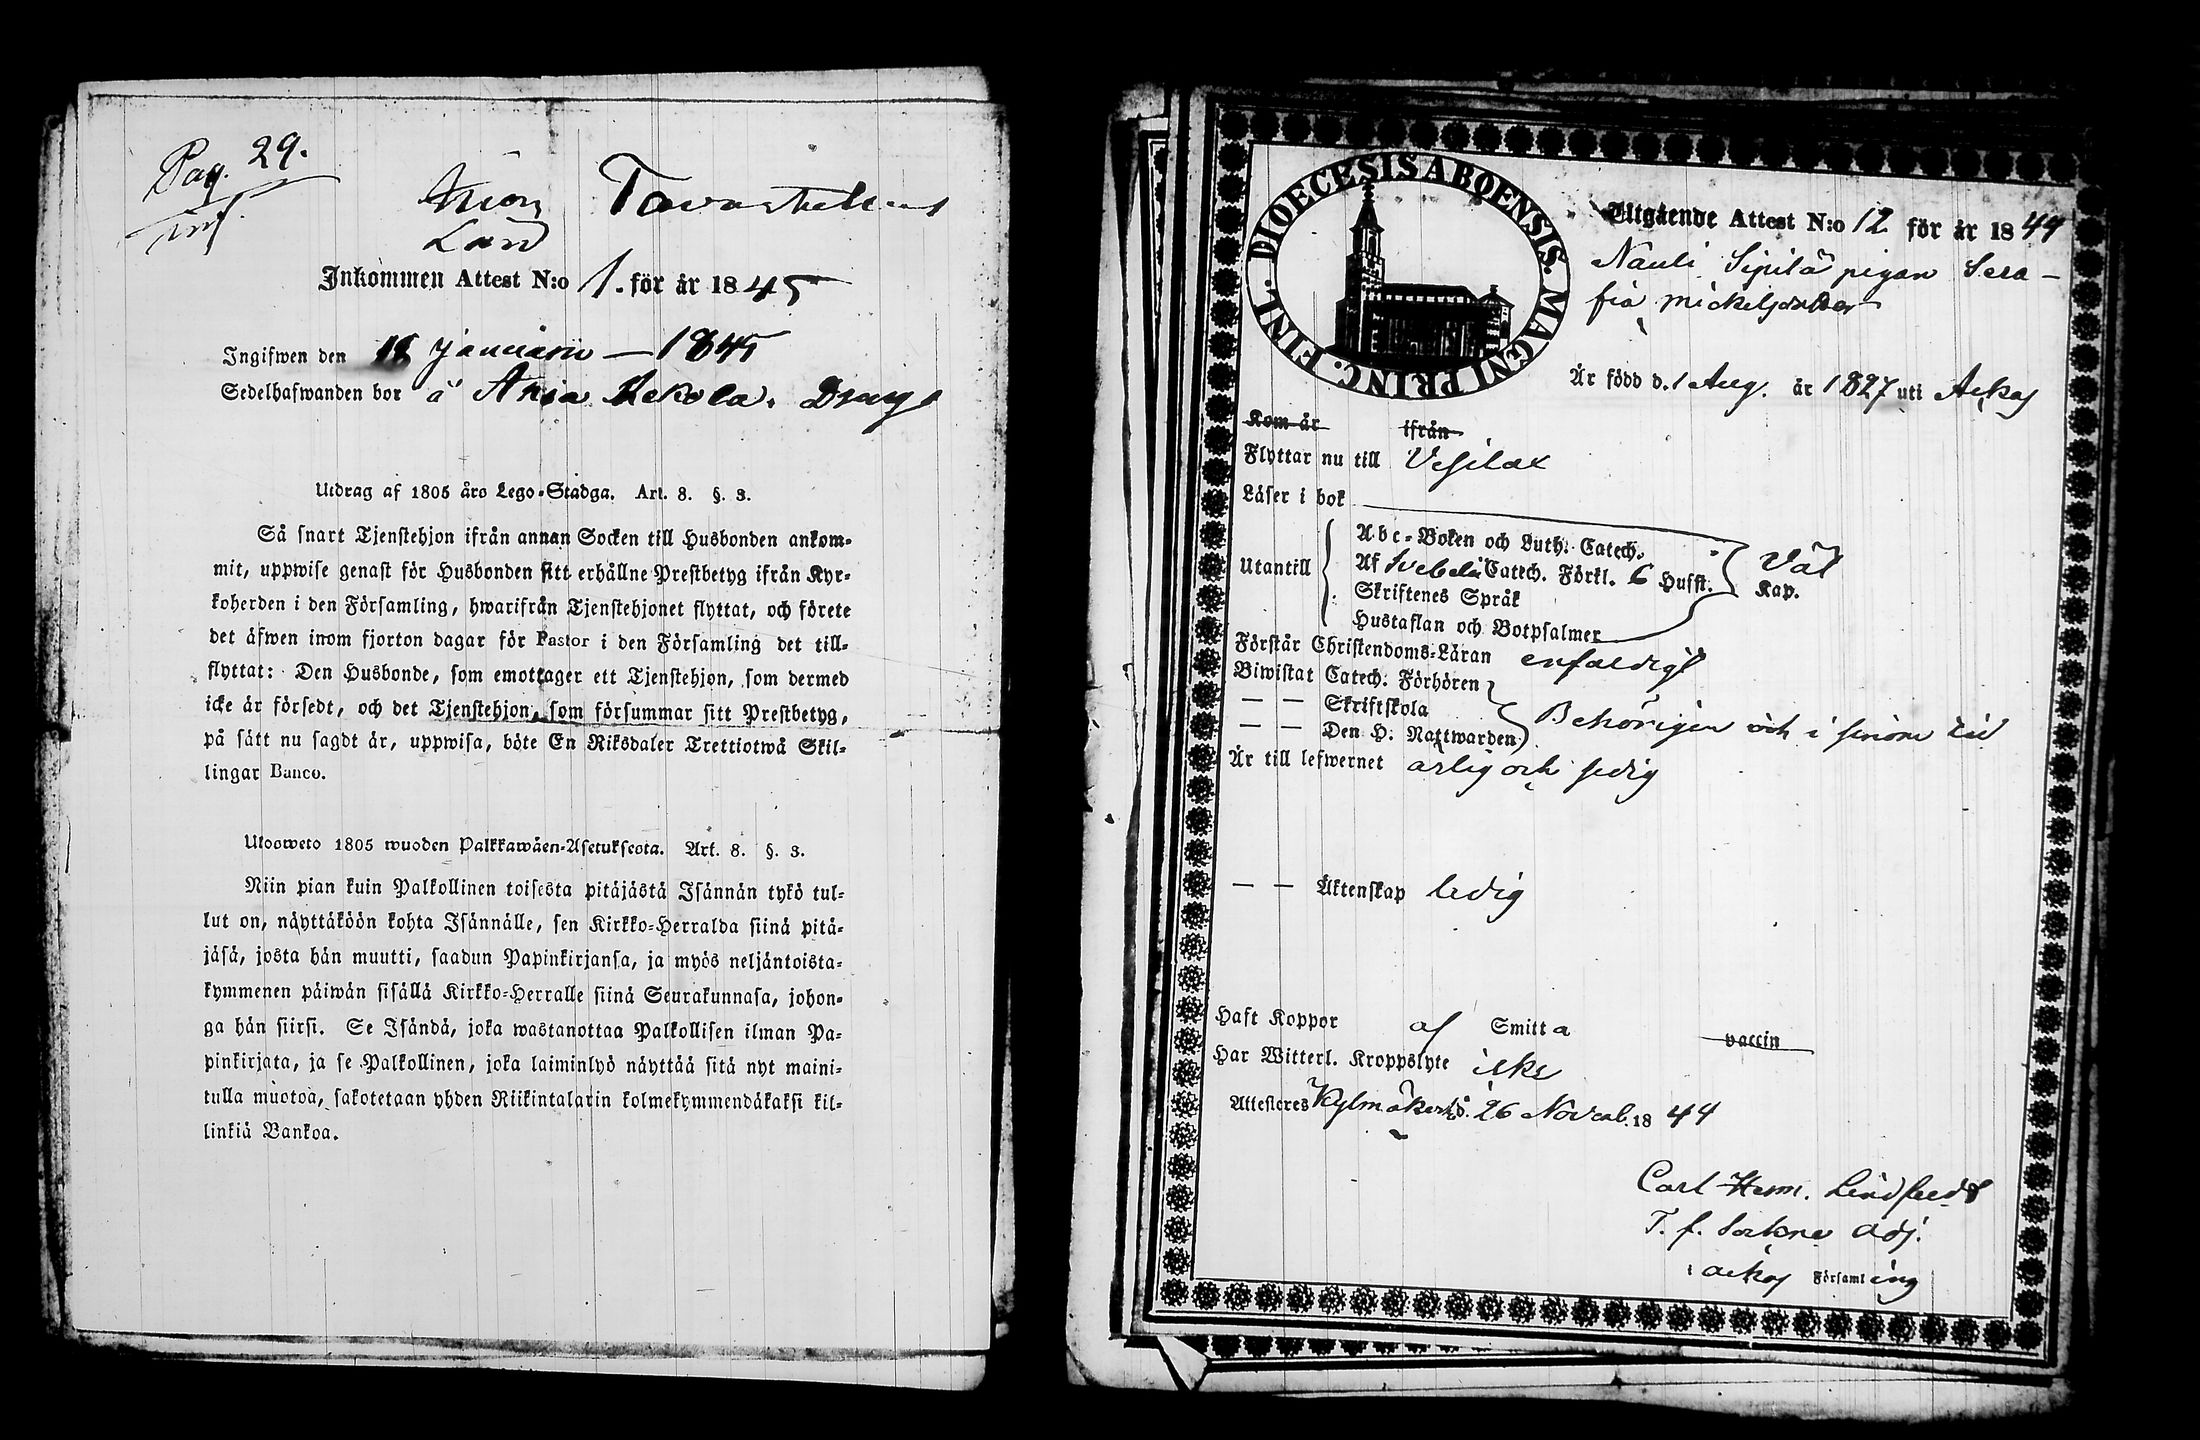 Pag. 29.
inf.
Tavastehus
Län
Inkommen Attest N:o 1. för år 1845
Ingifwen den 11 januarii — 1845
Sedelhafwanden bor å Ania Uekola. Dräng
Utdrag af 1805 års Lego-Stadga. Art. 8. §. 3.
Så snart Tjenstehjon ifrån annan Socken till Husbonden ankom-
mit, uppwise genast för Husbonden sitt erhållne Prestbetyg ifrån Kyr-
koherden i den Församling, hwarifrån Tjenstehjonet flyttat, och förete
det äfwen inom fjorton dagar för Pastor i den Församling det till-
flyttat: Den Husbonde, som emottager ett Tjenstehjon, som dermed
icke är försedt, och det Tjenstehjon, som försummar sitt Prestbetyg,
på sätt nu sagdt är, uppwisa, böte En Riksdaler Trettiotwå Skil-
lingar Banco.
Ulosweto 1805 wuoden Palkkawäen-Asetuksesta. Art. 8. §. 3.
Niin pian kuin Palkollinen toisesta pitäjästä Isännän tykö tul-
lut on, näyttäköön kohta Isännälle, sen Kirkko-Herralda siinä pitä-
jäsä, josta hän muutti, saadun Papinkirjansa, ja myös neljäntoista-
kymmenen päiwän sisällä Kirkko-Herralle siinä Seurakunnasa, johon-
ga hän siirsi. Se Isändä, joka wastanottaa Palkollisen ilman Pa-
pinkirjata, ja se Palkollinen, joka laiminlyö näyttää sitä nyt maini-
tulla muotoa, sakotetaan yhden Riikintalarin kolmekymmendäkaksi kil-
linkiä Bankoa.
DIOECESIS ABOENSIS. MAGNI PRINC. FINL.
Utgående Attest N:o 12 för år 1844
Nauli Sipilä pigan Sera-
fia Mickelsdotter
Är född d. 1 Aug. år 1827 uti Ackas
Kom år ifrån
Flyttar nu till Vesilax
Läser i bok
Utantill
Abc-Boken och Luth. Catech.
Af Svebelii Catech. Förkl. 6 Husst.
Väl
Kap.
Skriftenes Språk
Hustaflan och Botpsalmer
Förstår Christendoms-Läran enfaldigt
Biwistat Catech. Förhören
— — Skriftskola
— — Den H. Nattwarden
Behörigen och i sinom tid
Är till lefwernet ärlig och sedig
— — Äktenskap ledig
Haft Koppor af Smitta vaccin
Har Witterl. Kroppslyte icke
Attesteres Kylmäkoski d. 26 Novemb. 1844
Carl Herm. Lindstedt
T. f. Sockne Adj.
i Ackas Församling